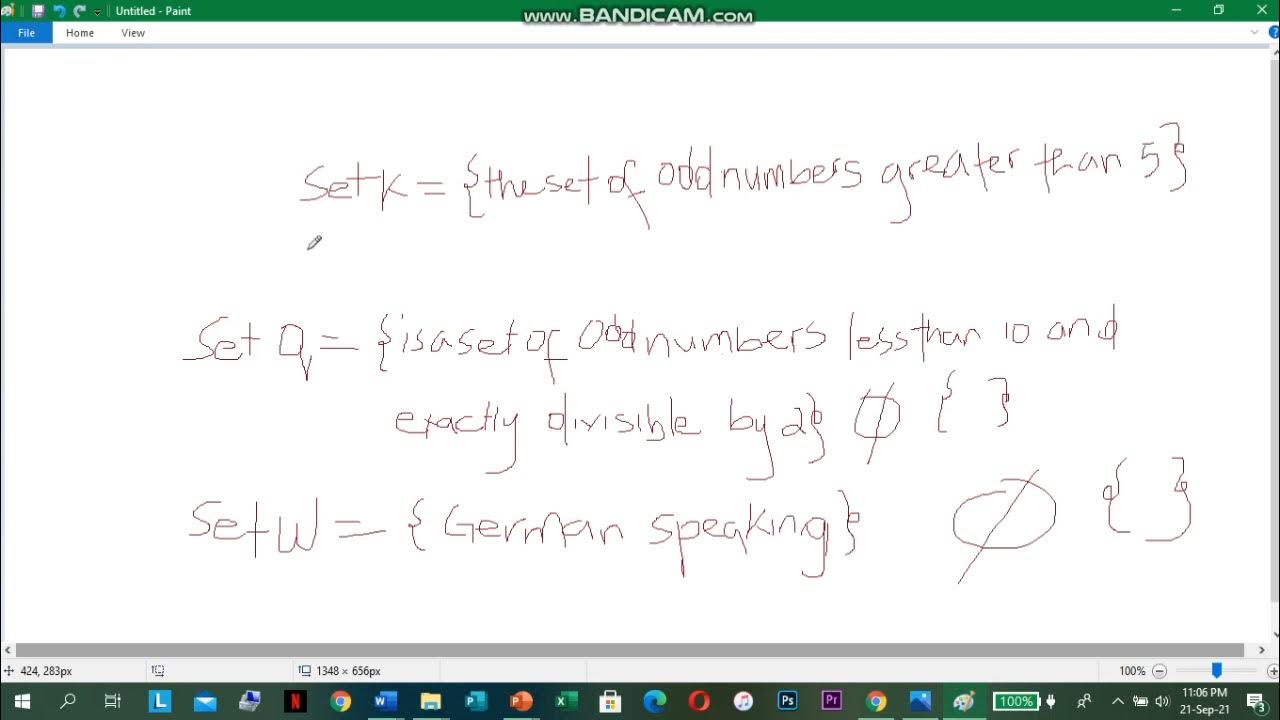 Untitled - Paint
www.BANDICAM.com
File Home View
Set K = {the set of odd numbers greater than 5}
Set Q = {is a set of odd numbers less than 10 and
exactly divisible by 2} ∅ { }
Set W = {German speaking} ∅ { }
424, 283px 1348 × 656px 100%
L N W P P X Ps Pr 100% 11:06 PM
21-Sep-21 3